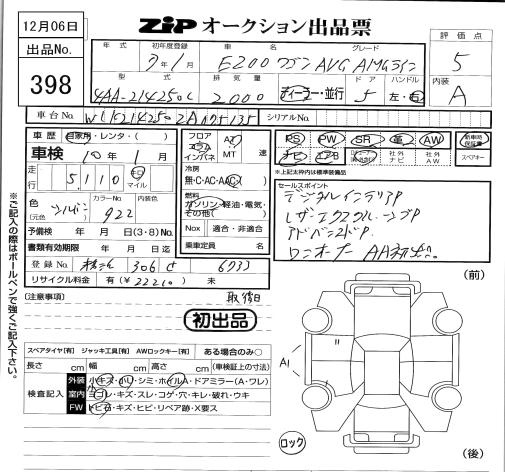 12月06日
ZiP オークション出品票
出品No.
398
年式 初年度登録 車名 グレード
7年1月 E200ワゴン AVG AMGライン
型式 排気量 ドア ハンドル
4AA-214250C 2000 ディーラー・並行 5 左・右
評価点
5
内装
A
車台No. シリアルNo.
車歴 自家用・レンタ・( )
車検 10年1月
走行 5,110 キロ マイル
色 (元色 シルバー カラーNo. 922 内装色
予備検 年 月 日(3・8)No.
書類有効期限 年 月 日迄
登録No. 306 6733
リサイクル料金 有(¥22210) 未
フロア コラム インパネ AT MT 速
冷房 無・C・AC・AAC( )
燃料 ガソリン・軽油・電気・その他( )
Nox 適合・非適合
乗車定員 名
PS PW SR 革 AW 新車時保証書
ナビ エアB 社外ナビ 社外AW スペアキー
*上記太枠内は標準装備品
セールスポイント
デジタルインテリアP
レザーエクスクルーシブP
アドバンスドP
ワンオーナー
※ご記入の際はボールペンで強くご記入下さい。
(注意事項) 取後日
初出品
スペアタイヤ[有] ジャッキ工具[有] AWロックキー[有] ある場合のみ○
長さ cm 幅 cm 高さ cm (車検証上の寸法)
検査記入
外装 小キズ・小凹・シミ・ホイルA・ドアミラー(A・ワレ)
室内 ヨゴレ・キズ・スレ・コゲ・穴・キレ・破れ・ウキ
FW トビ石・キズ・ヒビ・リペア跡・X要ス
(前)
A1
〃
ロック
(後)